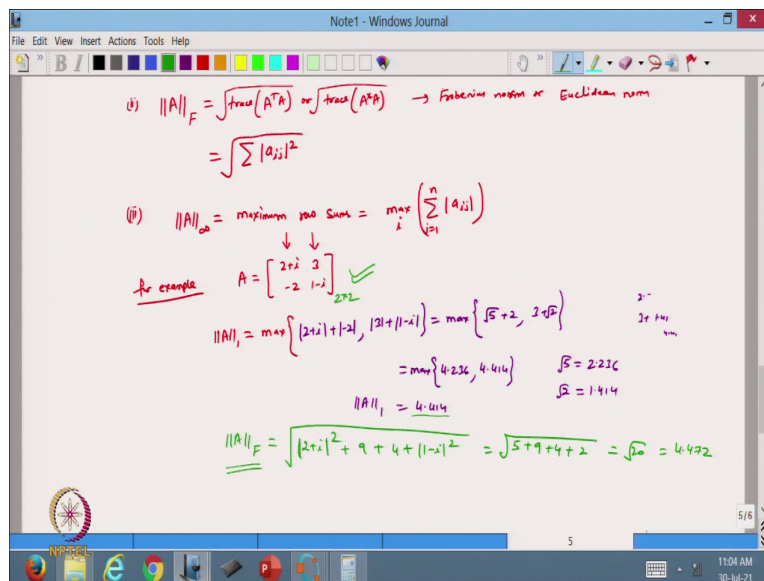 Note1 - Windows Journal
File Edit View Insert Actions Tools Help
B I
(ii) ||A||_F = √trace(AᵀA) or √trace(A*A) → Frobenius norm or Euclidean norm
= √Σ |aᵢⱼ|²
(iii) ||A||_∞ = maximum row sums = max_i ( Σ_{j=1}^{n} |aᵢⱼ| )
↓ ↓
for example A = [ 2+i 3
-2 1-i ]_{2×2}
||A||₁ = max{ |2+i|+|-2|, |3|+|1-i| } = max{ √5+2, 3+√2 }
= max{ 4.236, 4.414 } √5 = 2.236
||A||₁ = 4.414 √2 = 1.414
||A||_F = √|2+i|² + 9 + 4 + |1-i|² = √5+9+4+2 = √20 = 4.472
5/6
5
NPTEL
11:04 AM
30-Jul-21